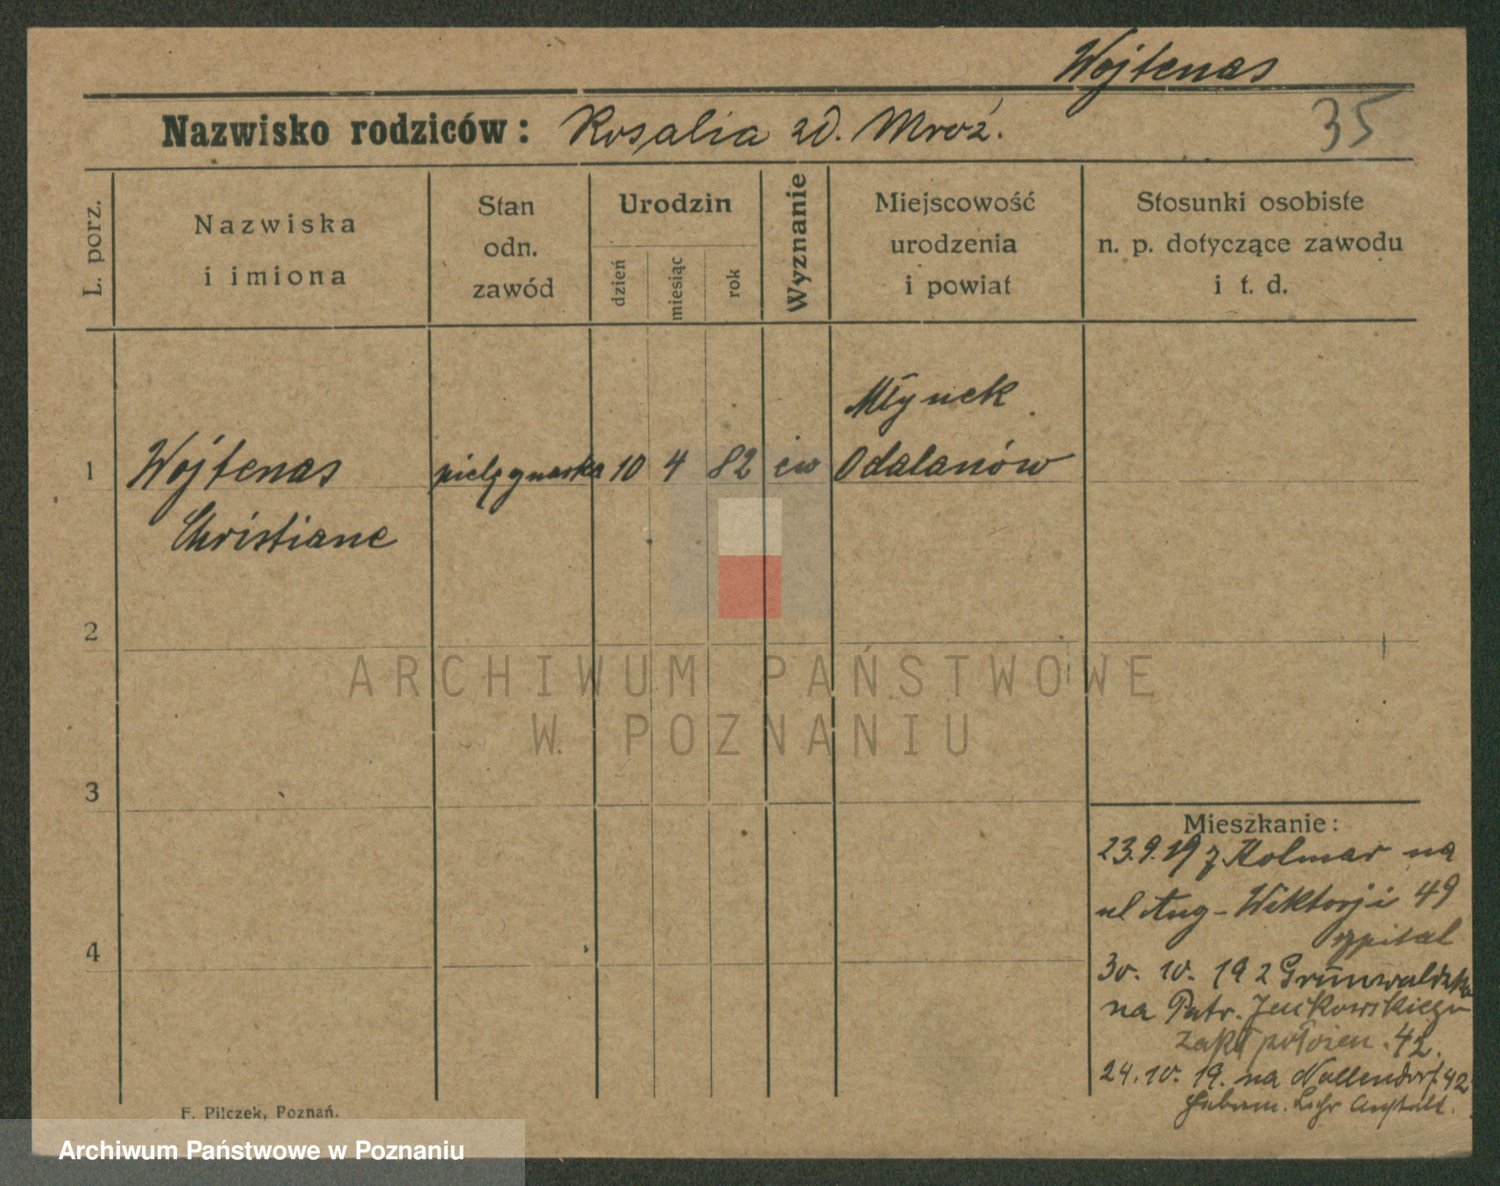 Wojtenas
Nazwisko rodziców: Rosalia zd. Mroź.
35
L. porz.
Nazwiska
i imiona
Stan
odn.
zawód
Urodzin
dzień
miesiąc
rok
Wyznanie
Miejscowość
urodzenia
i powiat
Stosunki osobiste
n. p. dotyczące zawodu
i t. d.
Młynek
1 Wojtenas pielęgnarka 10 4 82 ew Odalanów
Christiane
2
ARCHIWUM PAŃSTWOWE
W POZNANIU
3
Mieszkanie:
23.9.19 z Kolmar na
ul Aug-Wiktorji 49
szpital
4
30. 10. 19 z Grunwaldzka
na Patr. Jackowskiego
Zakł położn. 42.
24. 10. 19. na Nollendorf. 42
Hebam. Lehr Anstalt.
F. Pilczek, Poznań.
Archiwum Państwowe w Poznaniu